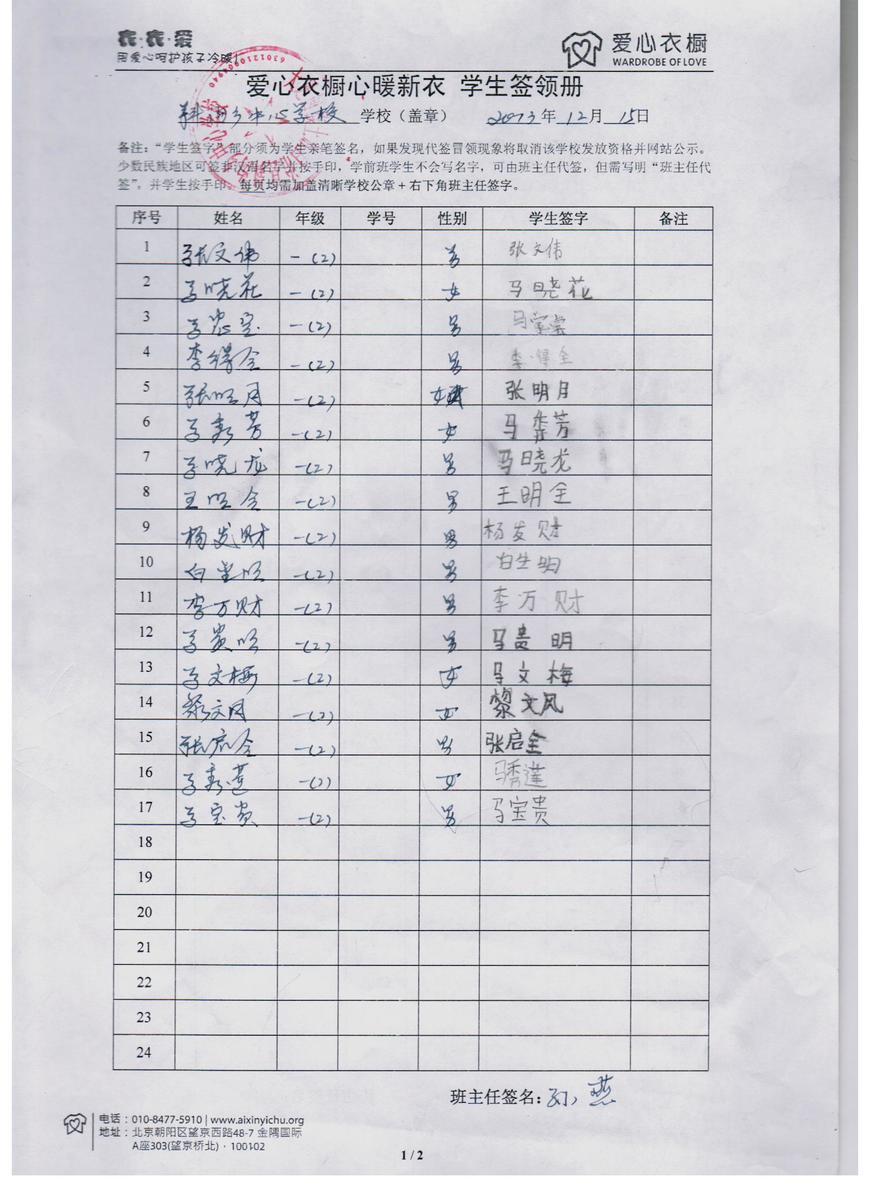 衣·衣·爱
用爱心呵护孩子冷暖!
爱心衣橱
WARDROBE OF LOVE
爱心衣橱心暖新衣 学生签领册
中心学校 学校（盖章） 2013年12月15日
备注：“学生签字”部分须为学生亲笔签名，如果发现代签冒领现象将取消该学校发放资格并网站公示。
少数民族地区可签非汉语名字并按手印，学前班学生不会写名字，可由班主任代签，但需写明“班主任代
签”，并学生按手印。每页均需加盖清晰学校公章+右下角班主任签字。
序号 姓名 年级 学号 性别 学生签字 备注
1 张文伟 一(2) 男 张文伟
2 马晓花 一(2) 女 马晓花
3 马忠宝 一(2) 男 马
4 李得全 一(2) 男 李得全
5 张明月 一(2) 女 张明月
6 马秀芳 一(2) 女 马秀芳
7 马晓龙 一(2) 男 马晓龙
8 王明全 一(2) 男 王明全
9 杨发财 一(2) 男 杨发财
10 白生明 一(2) 男 白生明
11 李万财 一(2) 男 李万财
12 马贵明 一(2) 男 马贵明
13 马文梅 一(2) 女 马文梅
14 文风 一(2) 女 黎文风
15 张启全 一(2) 男 张启全
16 马秀莲 一(2) 女 马秀莲
17 马宝贵 一(2) 男 马宝贵
18
19
20
21
22
23
24
班主任签名： 燕
电话：010-8477-5910 | www.aixinyichu.org
地址：北京朝阳区望京西路48-7 金隅国际
A座303(望京桥北)·100102
1 / 2